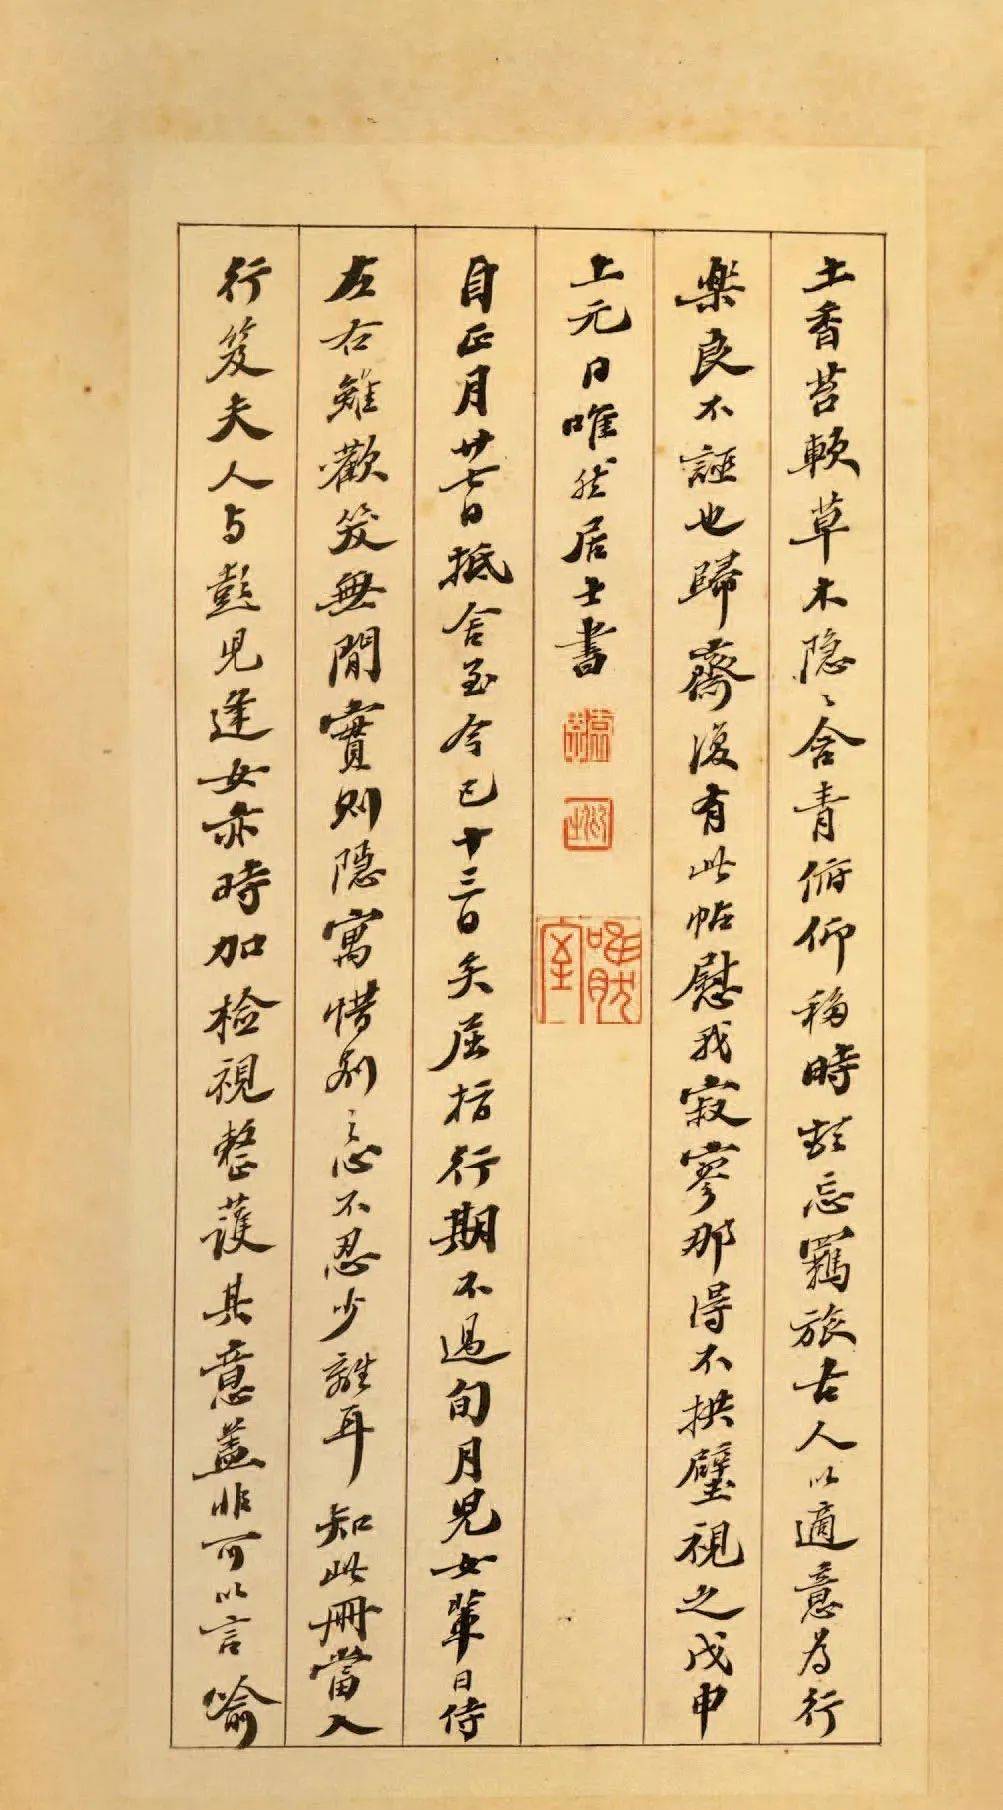 土香苔軟草木隐〻含青俯仰移時頓忘羈旅古人以適意為行
樂良不誣也歸齋後有此帖慰我寂寥那得不拱璧視之戊申
上元日唯然居士書
自正月廿七日抵舍至今已十三日矣屈指行期不過旬月兒女輩日侍
左右雖歡笑無間實則隱寓惜別之忘不忍少離耳知此冊當入
行笈夫人与彭兒逢女亦時加检視整護其意盖非可以言喻